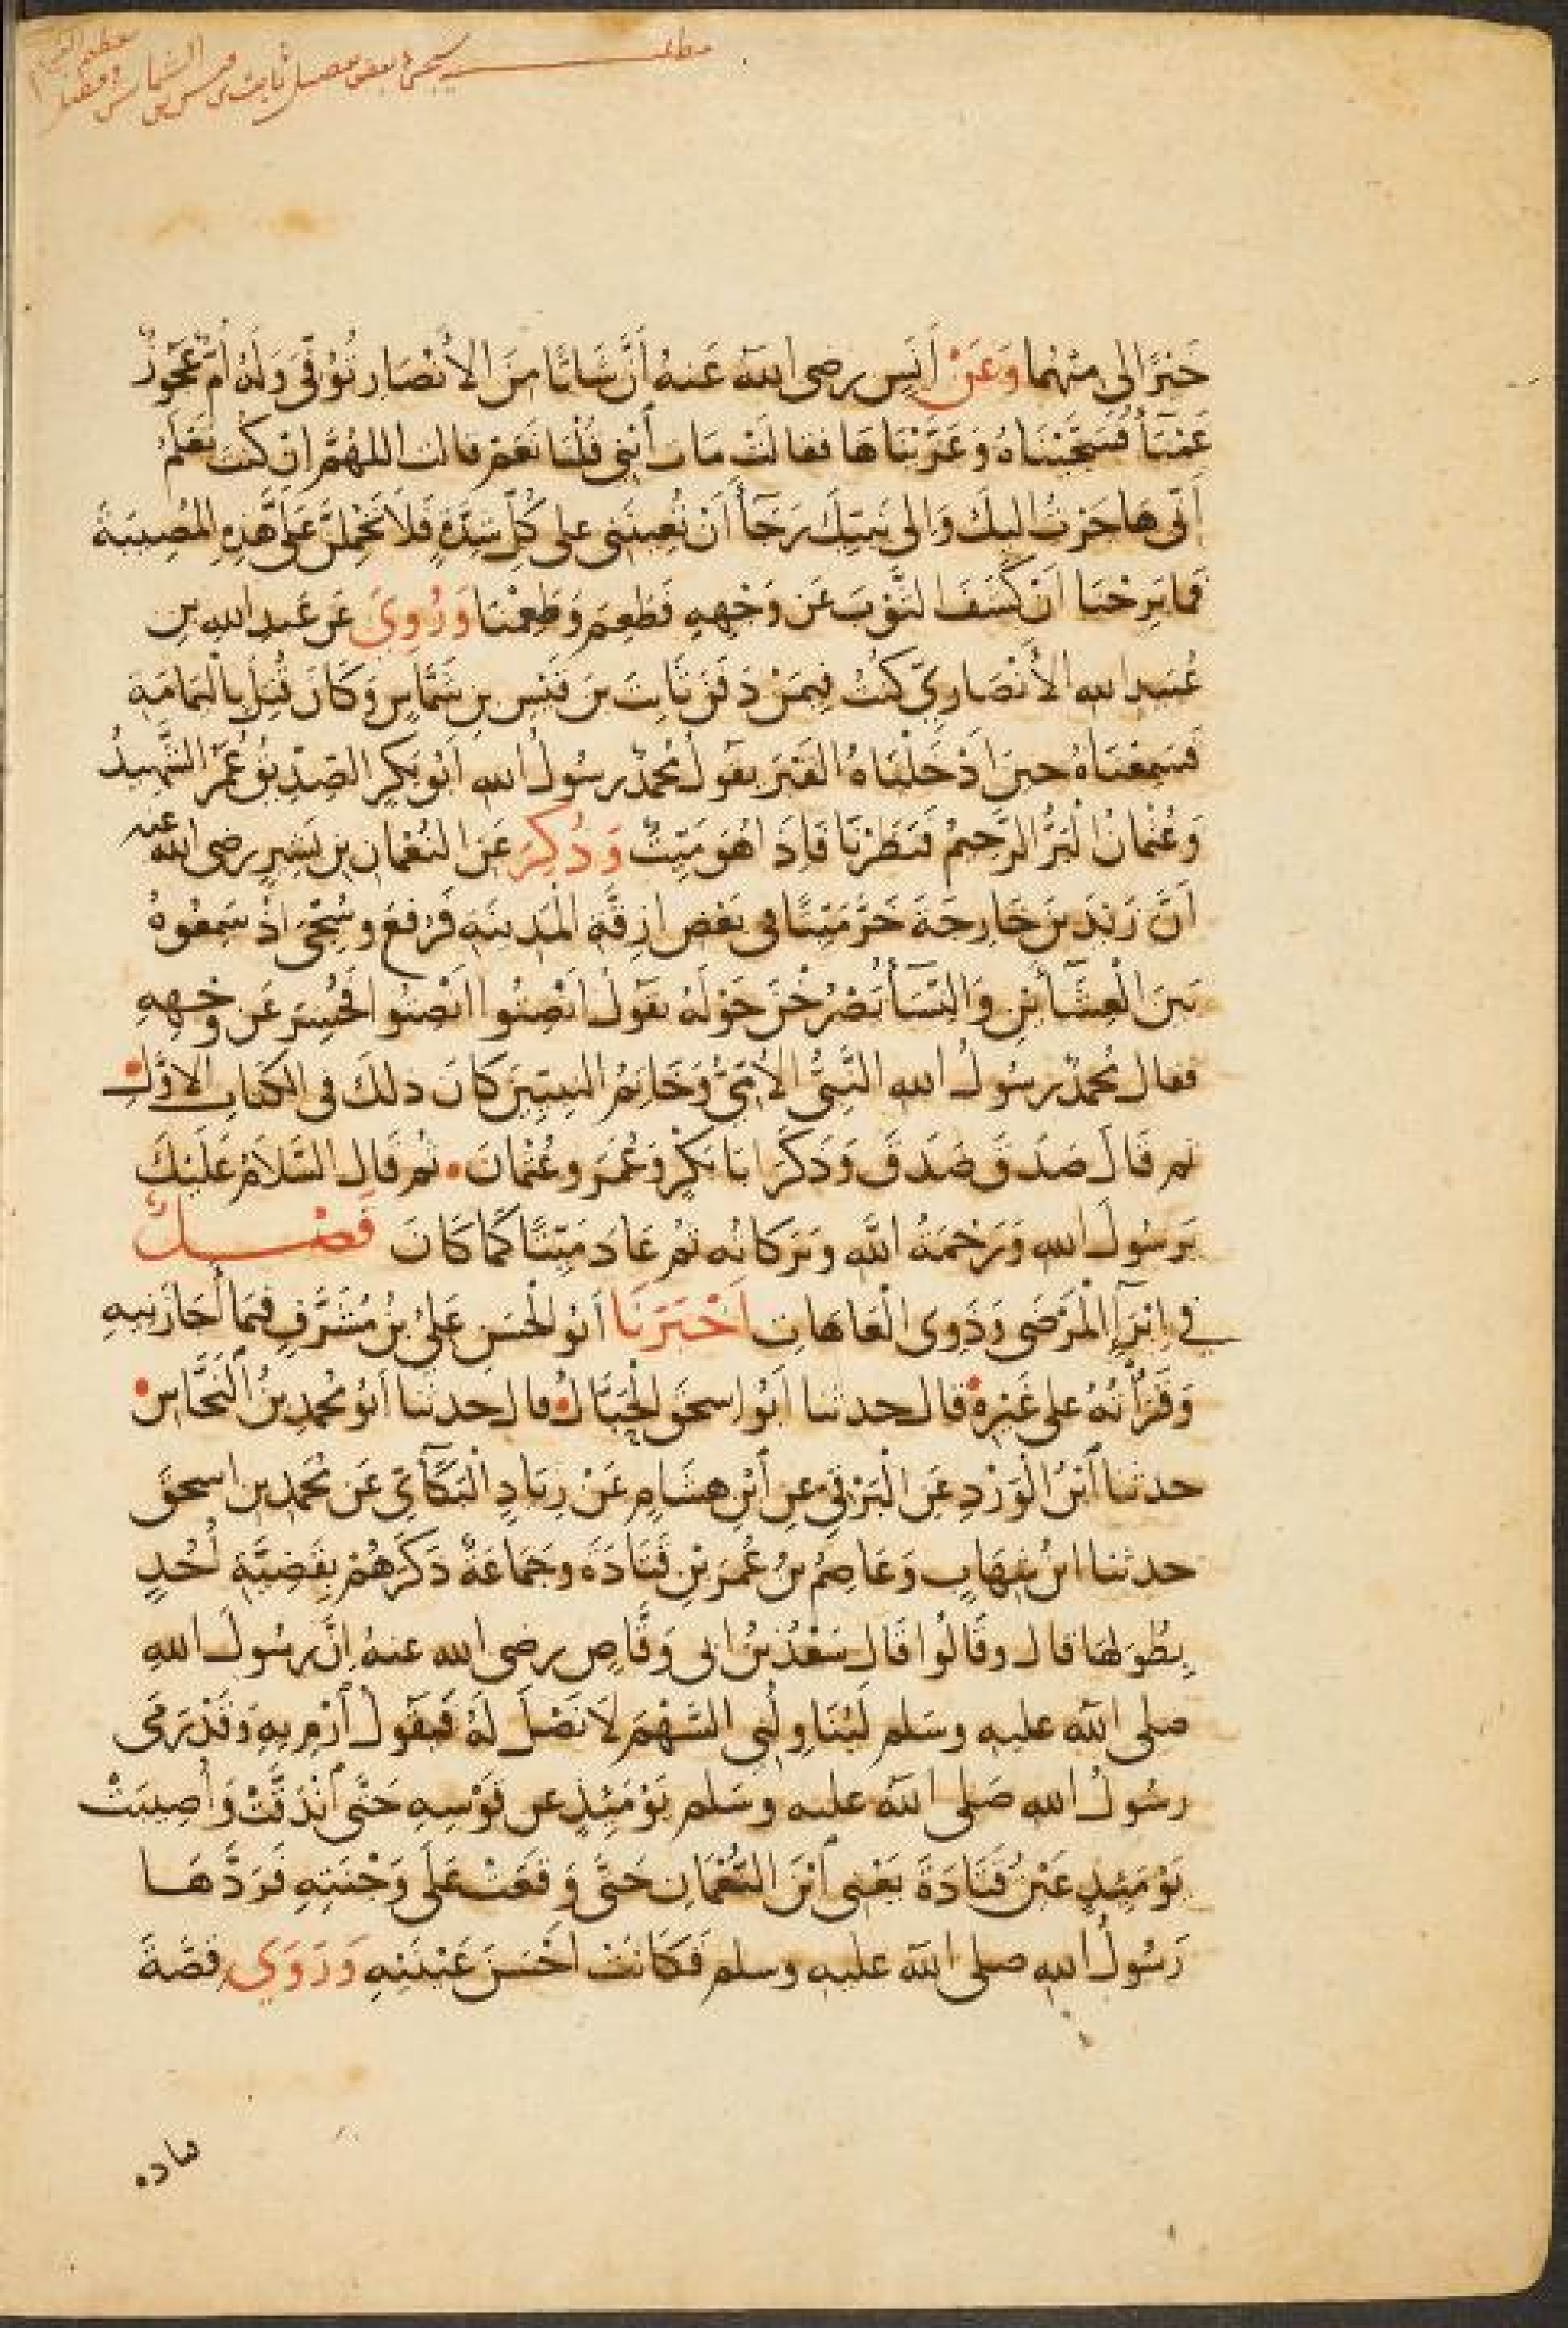 مطلب
خَيْرًا لى منهُما وَعَنْ أَنَسٍ رضى الله عَنهُ أَنَّ شَابًّا مِنَ الأَنْصَارِ تُوُفّىَ وَلَهُ أُمٌّ عَجُوزٌ
عَمْيَآءُ فَسَجَّيْنَاهُ وَعَزَّيْنَاهَا فقالَتْ مَاتَ ابْنِى قُلْنَا نَعَمْ قالت اللهُمَّ ان كُنتَ تَعْلَمُ
أَنّى هَاجَرْتُ اليكَ وَالى نَبيّكَ رَجَآءَ أَنْ تُعِينَنى على كُلِّ شِدَّةٍ فَلاَ تَحْمِلَنَّ عَلَىَّ هذِهِ المُصِيبَةَ
فمَا بَرِحْنَا أَنْ كَشَفَ الثَّوْبَ عَن وَجْهِهِ فَطَعِمَ وَطَعِمْنَا وَرُوِىَ عَن عَبدِ الله بنِ
عُبَيدِ الله الأَنْصَارِيّ كنتُ فِيمَنْ دَفَنَ ثَابِتَ بنَ قَيْسِ بنِ شَمَّاسٍ وَكَانَ قُتِلَ بِاليَمَامَةِ
فَسَمِعْنَاهُ حينَ ادْخَلْنَاهُ القَبْرَ يقولُ مُحمدٌ رسُولُ الله ابُو بَكرٍ الصّدِّيقُ عُمَرُ الشَّهِيدُ
وَعُثْمانُ البَرُّ الرَّحيمُ فَنَظَرْنَا فَاِذَا هُوَ مَيّتٌ وَذُكِرَ عَنِ النُعْمانِ بنِ بَشيرٍ رضى الله عنه
اَنَّ زَيْدَ بنَ خَارِجَةَ خَرَّ مَيّتًا فى بَعْضِ ازِقَّةِ المَدينَةِ فَرُفِعَ وسُجّىَ اذْ سَمِعُوهُ
بَينَ الْعِشَآئَيْنِ وَالنِّسَآءُ يَصْرُخْنَ حَوْلَهُ يَقُولُ انْصِتُوا انْصِتُوا فَحُسِرَ عَن وَجْهِهِ
فقال مُحمدٌ رسُولُ الله النَّبِىُّ الأُمّىُّ وَخَاتِمُ النبيّينَ كانَ ذلكَ فى الكتابِ الاوَّلِ
ثم قَالَ صَدَقَ صَدَقَ وَذَكَرَ ابَا بَكْرٍ وَعُمَرَ وعُثمانَ ثُم قَال السَّلاَمُ عَلَيْكَ
يَرَسُولَ الله وَرَحْمَةُ اللَّه وبَرَكاتُه ثم عَادَ مَيّتًا كَمَا كَانَ فَصْــلٌ
فى اِبْرَآءِ الْمَرْضَى وَذَوِى الْعَاهَاتِ اَخْبَرَنَا ابُو الحَسَنِ عَلىُّ بنُ مُشَرَّفٍ فيمَا أَجَازَنِيهِ
وَقَرَأْتُهُ على غَيْرِهِ قال حدثنا أَبُو اسحقَ الحَبَّالُ قال حدثنا ابُو مُحمدِ بنُ النَحَّاسِ
حدثنا ابْنُ الْوَرْدِ عَنِ الْبَرْقىّ عن ابْنِ هشَامٍ عَنْ زِيَادٍ الْبَكَّآئىّ عَن مُحَمدِ بنِ اسحقَ
حدثنا ابنُ شِهَابٍ وَعَاصِمُ بنُ عُمَرَ بْنِ قَتَادَةَ وجَمَاعَةٌ ذكَرَهُمْ بِقَضِيَّةِ أُحُدٍ
بِطُولِهَا قال وقَالُوا قال سَعْدُ بنُ ابى وَقَّاصٍ رضى الله عنهُ اِنَّ رسُولَ اللهِ
صلى الله عليه وسَلم لَيُنَاوِلُنِى السَّهْمَ لاَ نَصْلَ لَهُ فَيَقُولُ ارْمِ بِهِ وَقَدْ رَمَى
رسُولُ الله صَلى الله عليه وسَلم يَوْمَئِذٍ عن قَوْسِهِ حَتَّى انْدَقَّتْ وَأُصِيبَتْ
يَوْمَئِذٍ عَيْنُ قَتَادَةَ يَعْنِى ابْنَ النُّعْمَانِ حَتَّى وَقعَتْ عَلَى وَجْنَتِهِ فَرَدَّهَا
رَسُولُ الله صلى الله عليه وسلم فَكَانَتْ أَحْسَنَ عَيْنَيْهِ وَرَوَى قصَّةَ
قتاده